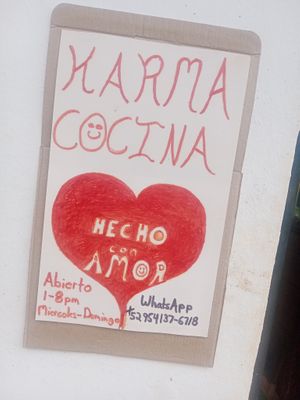 KARMA
COCINA
HECHO
con
AMOR
Abierto
1-8pm
Miercoles-Domingo
WhatsApp
+52 954137-6718